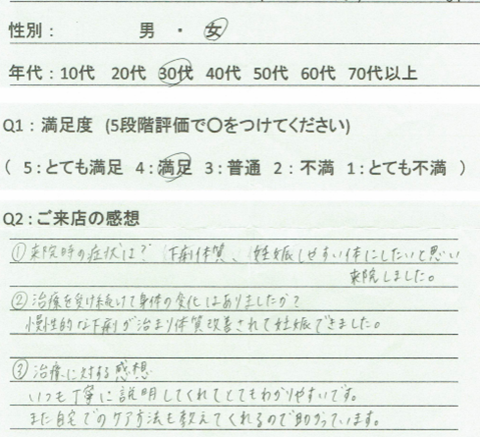 性別： 男 ・ 女
年代：10代 20代 30代 40代 50代 60代 70代以上
Q1：満足度 (5段階評価で〇をつけてください)
（ 5：とても満足 4：満足 3：普通 2：不満 1：とても不満 ）
Q2：ご来店の感想
①来院時の症状は? 下痢体質、妊娠しやすい体にしたいと思い
来院しました。
②治療を受け続けて身体の変化はありましたか?
慢性的な下痢が治まり体質改善されて妊娠できました。
③治療に対する感想
いつも丁寧に説明してくれてとてもわかりやすいです。
また自宅でのケア方法も教えてくれるので助かっています。